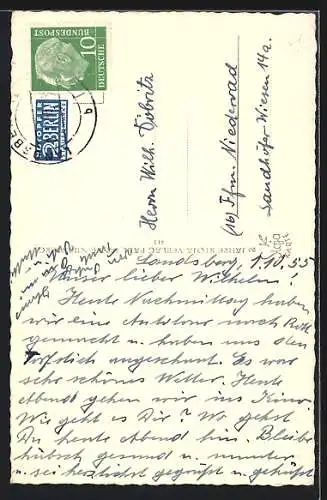 DEUTSCHE
BUNDESPOST
10
NOTOPFER
2 BERLIN
STEUERMARKE
b
Herrn Wilh. Döbritz
(16) Ffm. Niederrad
Sandhöfer-Wiesen 14a.
Landsberg, 1.10.55
Unser lieber Wilhelm!
Heute Nachmittag haben
wir eine Autotour nach Rott
gemacht u. haben uns das
Dörflich angeschaut. Es war
sehr schönes Wetter. Heute
Abend gehen wir ins Kino.
Wie geht es Dir? Wo gehst
Du heute Abend hin. Bleibe
hübsch gesund u. munter
u. sei herzlichst gegrüßt u. geküßt